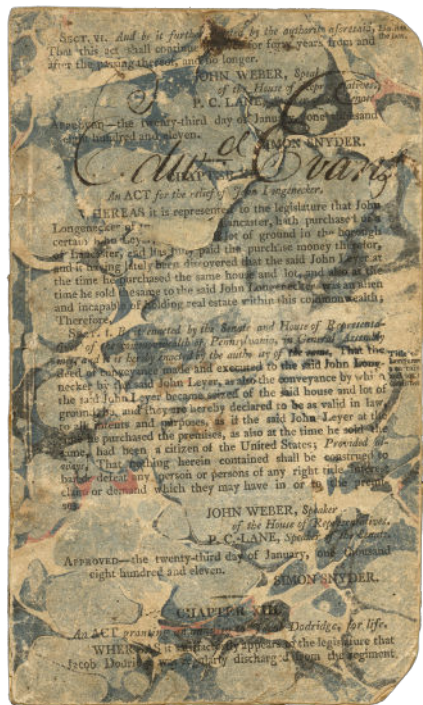 SECT. VI. And be it further enacted by the authority aforesaid,
That this act shall continue in force for forty years from and
after the passing thereof, and no longer.
JOHN WEBER, Speaker
of the House of Representatives.
P. C. LANE,
APPROVED—the twenty-third day of January, one thousand
eight hundred and eleven.
SIMON SNYDER.
Edwd Evans
CHAPTER
An ACT for the relief of John Longenecker.
WHEREAS it is represented to the legislature that John
Longenecker of Lancaster, hath purchased of a
certain John Leyer lot of ground in the borough
of Lancaster, and has fully paid the purchase money therefor,
and it having lately been discovered that the said John Leyer at
the time he purchased the same house and lot, and also at the
time he sold the same to the said John Longenecker was an alien
and incapable of holding real estate within this commonwealth;
Therefore,
SECT. I. BE it enacted by the Senate and House of Representa-
tives of the commonwealth of Pennsylvania, in General Assembly
met, and it is hereby enacted by the authority of the same, That the
deed of conveyance made and executed to the said John Longe-
necker by the said John Leyer, as also the conveyance by which
the said John Leyer became seized of the said house and lot of
ground, be, and they are hereby declared to be as valid in law
to all intents and purposes, as if the said John Leyer at the
time he purchased the premises, as also at the time he sold the
same, had been a citizen of the United States; Provided al-
ways, That nothing herein contained shall be construed to
bar or defeat any person or persons of any right title, interest
claim or demand which they may have in or to the premi-
ses.
JOHN WEBER, Speaker
of the House of Representatives.
P. C. LANE, Speaker of the Senate.
APPROVED—the twenty-third day of January, one thousand
eight hundred and eleven.
SIMON SNYDER.
CHAPTER XIII.
An ACT granting an annuity to Jacob Dodridge, for life.
WHEREAS it satisfactorily appears to the legislature that
Jacob Dodridge was regularly discharged from the regiment